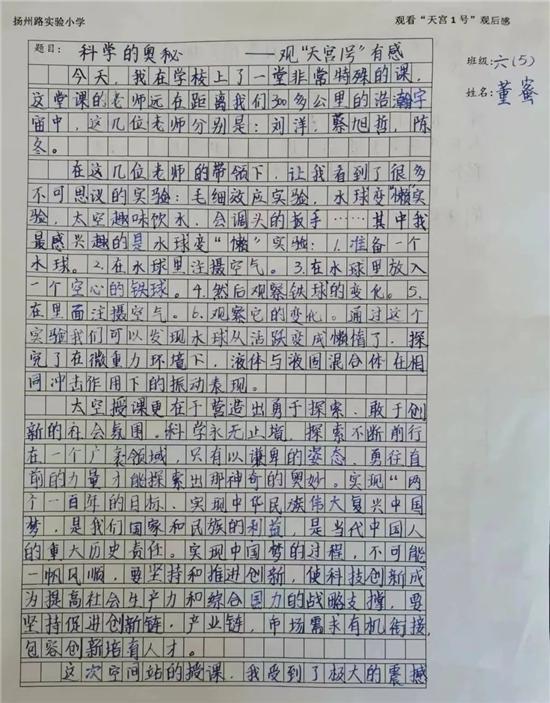 扬州路实验小学
观看“天宫1号”观后感
题目：科学的奥秘 ——观“天宫1号”有感
班级：六(5)
姓名：董蜜
今天，我在学校上了一堂非常特殊的课，
这堂课的老师远在距离我们300多公里的浩瀚宇
宙中，这几位老师分别是：刘洋，蔡旭哲，陈
冬。
在这几位老师的带领下，让我看到了很多
不可思议的实验：毛细效应实验，水球变“懒”实
验，太空趣味饮水，会调头的扳手……其中我
最感兴趣的是水球变“懒”实验：1.准备一个
水球。2.在水球里注摄空气。3.在水球里放入
一个空心的铁球。4.然后观察铁球的变化。5.
在里面注摄空气。6.观察它的变化。通过这个
实验我们可以发现水球从活跃变成懒惰了，探
究了在微重力环境下，液体与液固混合体在相
同冲击作用下的振动表现。
太空授课更在于营造出勇于探索、敢于创
新的社会氛围。科学永无止境，探索不断前行
在一个广袤领域，只有以谦卑的姿态，勇往直
前的力量才能探索出那神奇的奥妙。实现“两
个一百年的目标、实现中华民族伟大复兴中国
梦，是我们国家和民族的利益，是当代中国人
的重大历史责任。实现中国梦的过程，不可能
一帆风顺，要坚持和推进创新，使科技创新成
为提高社会生产力和综合国力的战略支撑，要
坚持促进创新链，产业链，市场需求有机衔接，
包容创新培育人才。
这次空间站的授课，我受到了极大的震撼